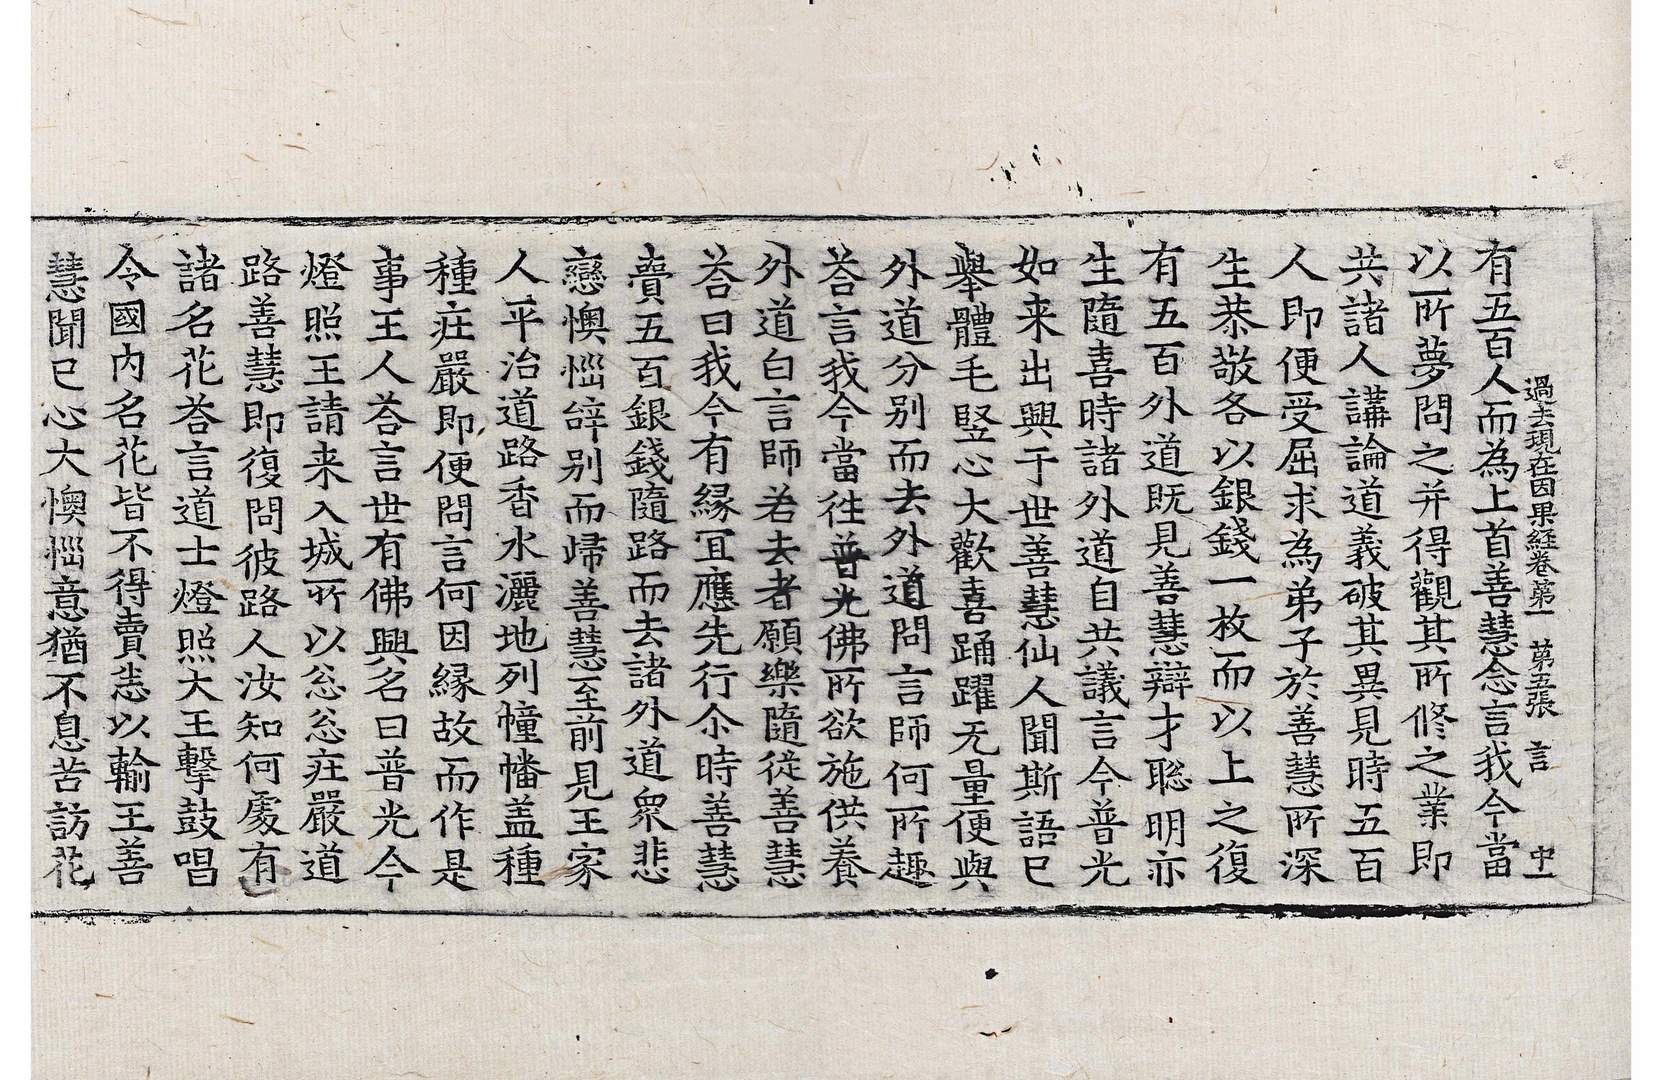 過去現在因果経卷苐一　苐五張　言　中一
有五百人而為上首善慧念言我今當
以所夢問之并得觀其所修之業即
共諸人講論道義破其異見時五百
人即便受屈求為弟子於善慧所深
生恭敬各以銀錢一枚而以上之復
有五百外道既見善慧辯才聡明亦
生隨喜時諸外道自共議言今普光
如来出興于世善慧仙人聞斯語已
舉體毛竪心大歡喜踊躍无量便與
外道分別而去外道問言師何所趣
荅言我今當往普光佛所欲施供養
外道白言師若去者願樂隨從善慧
荅曰我今有縁冝應先行尒時善慧
賷五百銀錢隨路而去諸外道衆悲
戀懊惱辝別而歸善慧至前見王家
人平治道路香水灑地列幢幡盖種
種莊嚴即便問言何因縁故而作是
事王人荅言世有佛興名曰普光今
燈照王請来入城所以忩忩莊嚴道
路善慧即復問彼路人汝知何處有
諸名花荅言道士燈照大王擊鼓唱
令國內名花皆不得賣悉以輸王善
慧聞已心大懊惱意猶不息苦訪花